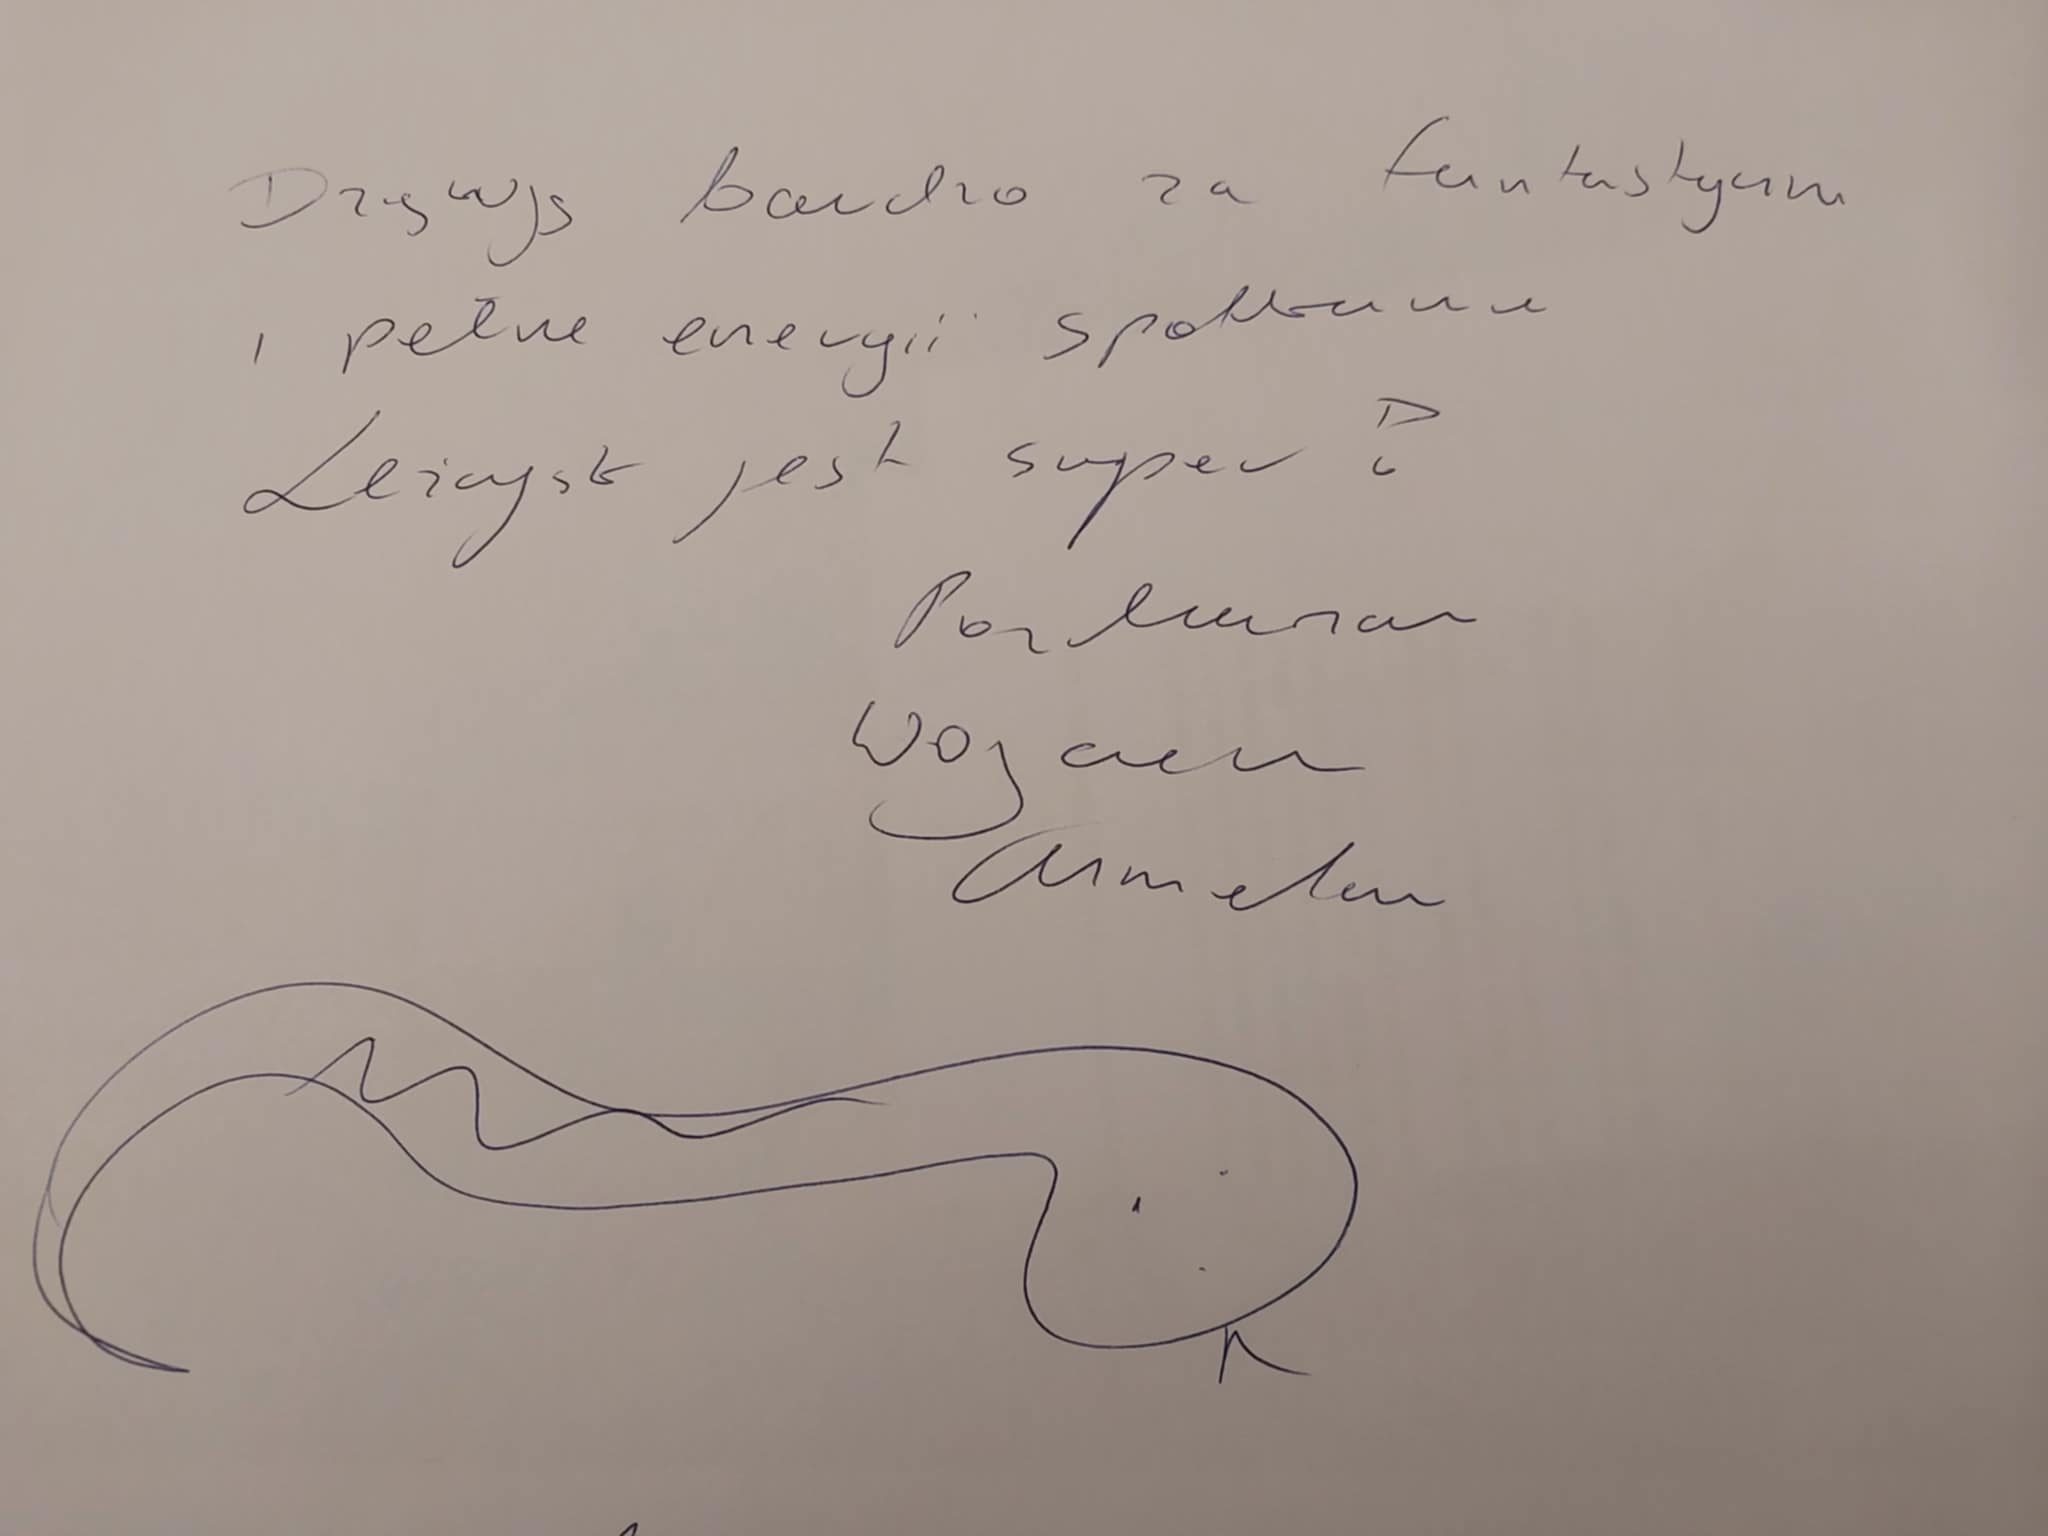 Dziękuję bardzo za fantastyczne
i pełne energii spotkanie
Leżajsk jest super!
Pozdrawiam